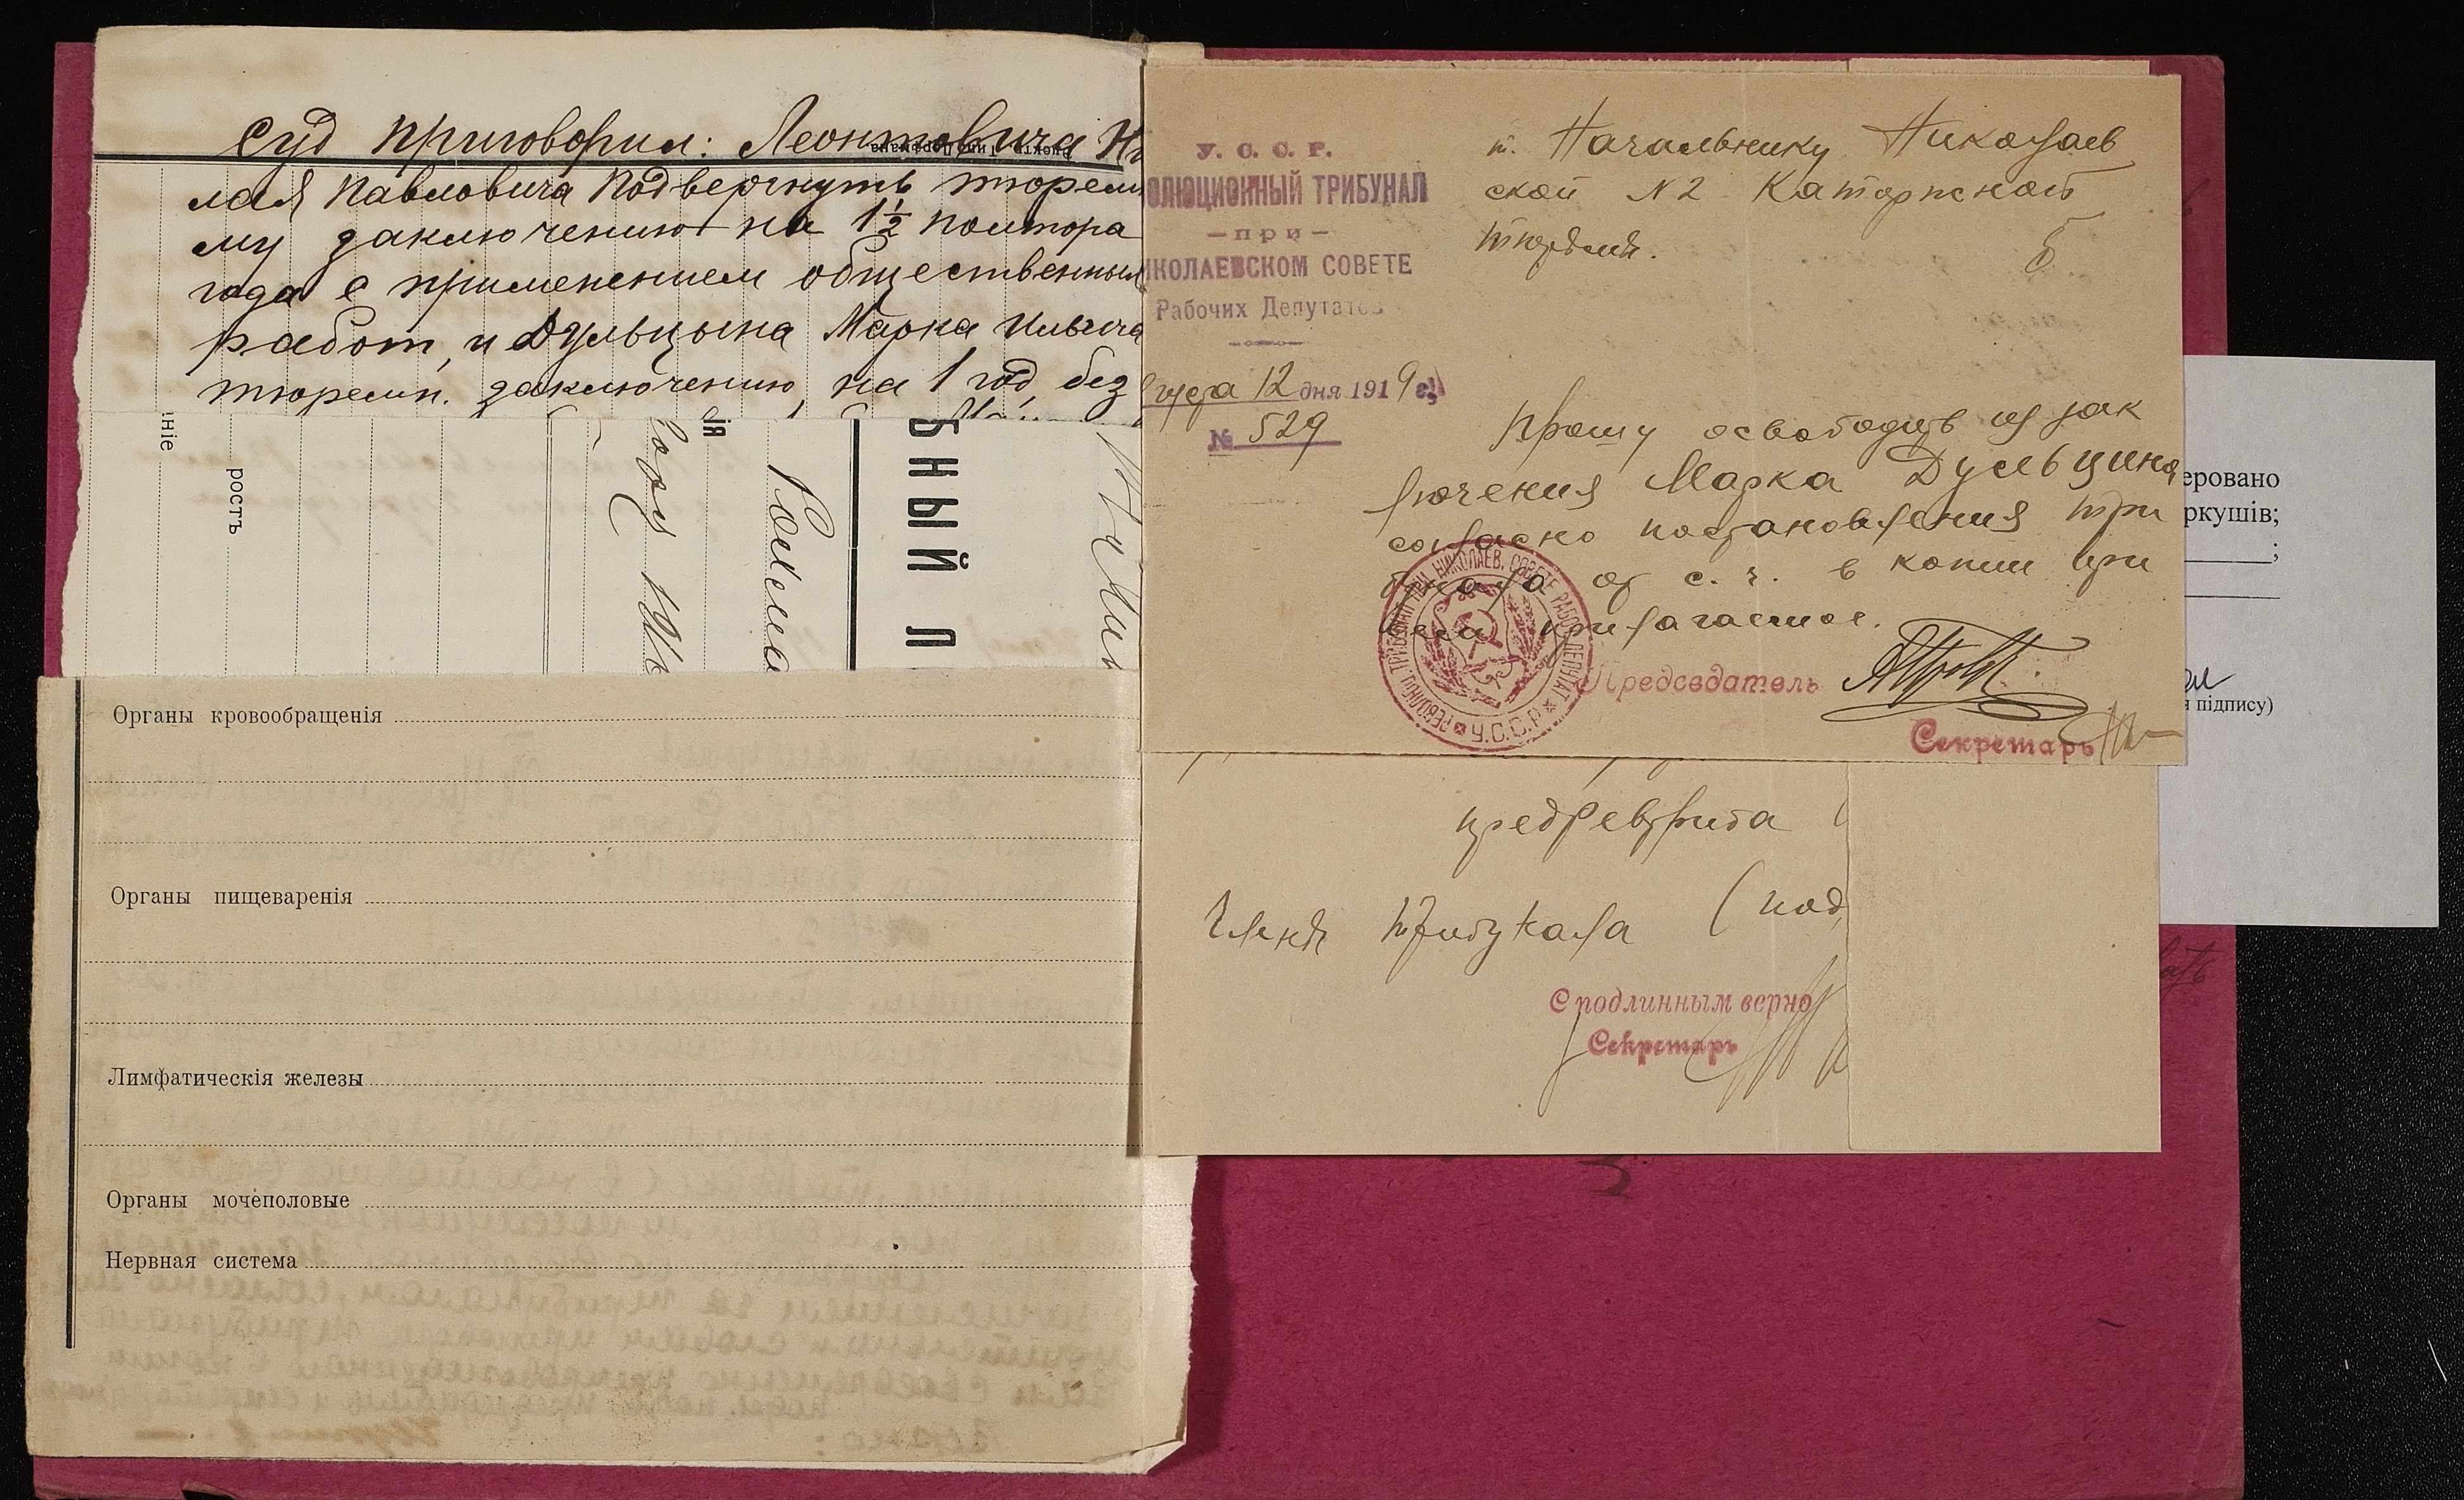 Суд приговорил: Леонтовича Ни
лая Павловича Подвергнуть тюремн
му заключению на 1½ полтора
года с применением общественных
работ, и Дульцына Марка Ильича
тюремн. заключению, на 1 год, без
ніе
ростъ
ія
БНЫЙ Л
Органы кровообращенія
Органы пищеваренія
Лимфатическія железы
Органы мочеполовые
Нервная система
У. С. С. Р.
ОЛЮЦИОННЫЙ ТРИБУНАЛ
— при —
ИКОЛАЕВСКОМ СОВЕТЕ
Рабочих Депутатов
12 дня 1919 г.
№ 529
т. Начальнику Николаев
ской N2 Каторжской
тюрьмы.
Прошу освободить из зак
лючения Марка Дульцина
согласно постановления три
бунала от с. г. в копии при
сем прилагаемой.
РЕВОЛЮЦ. ТРИБУНАЛ ПРИ НИКОЛАЕВ. СОВЕТЕ РАБОЧ. ДЕПУТАТ. У.С.С.Р.
Председатель
Секретарь
предревтриба
Члены трибунала (под
С подлинным верно
Секретарь
еровано
ркушів;
;
підпису)